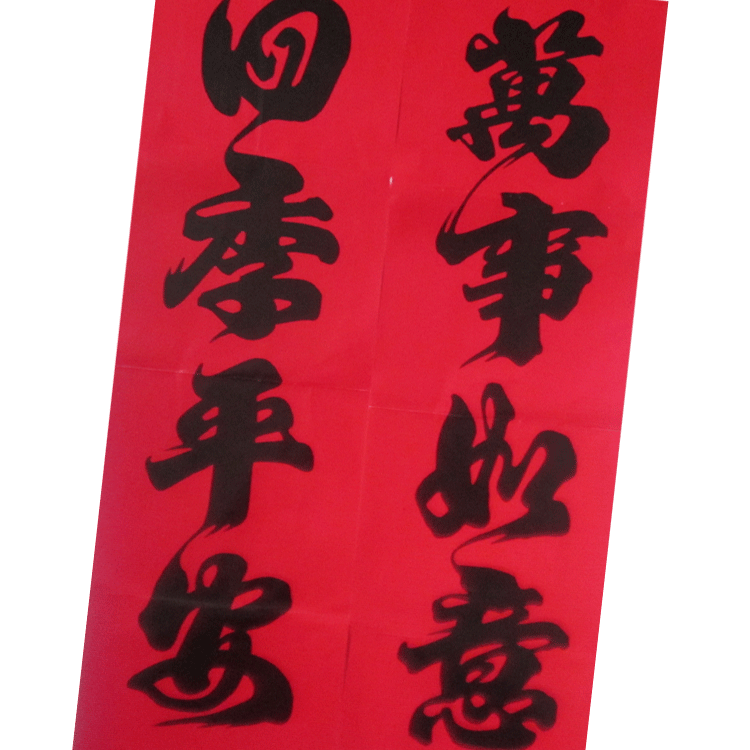 萬事如意
四季平安